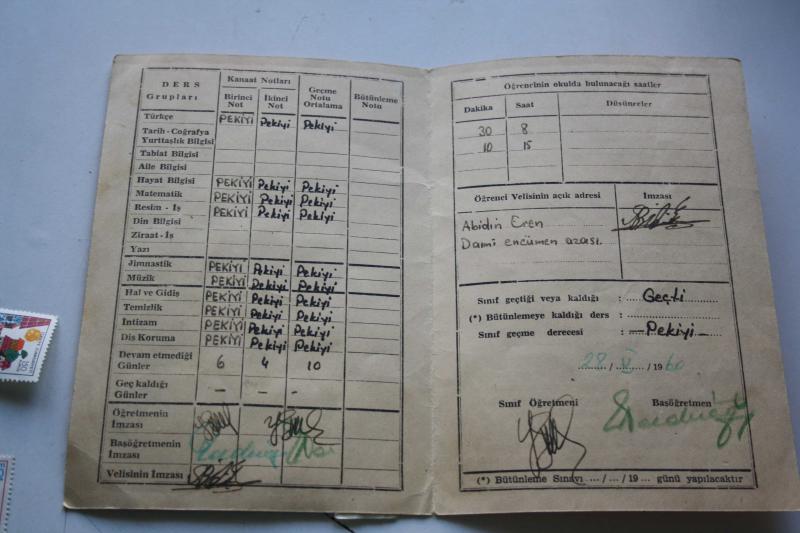 DERS Grupları
Kanaat Notları
Birinci Not
İkinci Not
Geçme Notu Ortalama
Bütünleme Notu
Türkçe PEKİYİ Pekiyi Pekiyi
Tarih - Coğrafya
Yurttaşlık Bilgisi
Tabiat Bilgisi
Aile Bilgisi
Hayat Bilgisi PEKİYİ Pekiyi Pekiyi
Matematik PEKİYİ Pekiyi Pekiyi
Resim - İş PEKİYİ Pekiyi Pekiyi
Din Bilgisi
Ziraat - İş
Yazı
Jimnastik PEKİYİ Pekiyi Pekiyi
Müzik PEKİYİ Pekiyi Pekiyi
Hal ve Gidiş PEKİYİ Pekiyi Pekiyi
Temizlik PEKİYİ Pekiyi Pekiyi
İntizam PEKİYİ Pekiyi Pekiyi
Dis Koruma PEKİYİ Pekiyi Pekiyi
Devam etmediği Günler 6 4 10
Geç kaldığı Günler - - -
Öğretmenin İmzası
Başöğretmenin İmzası
Velisinin İmzası
Öğrencinin okulda bulunacağı saatler
Dakika Saat Düşünceler
30 8
10 15
Öğrenci Velisinin açık adresi İmzası
Abidin Eren
Dami encümen azası.
Sınıf geçtiği veya kaldığı : Geçti
(*) Bütünlemeye kaldığı ders :
Sınıf geçme derecesi : Pekiyi
28 / V / 1960
Sınıf Öğretmeni Başöğretmen
(*) Bütünleme Sınavı ... / ... / 19 ... günü yapılacaktır